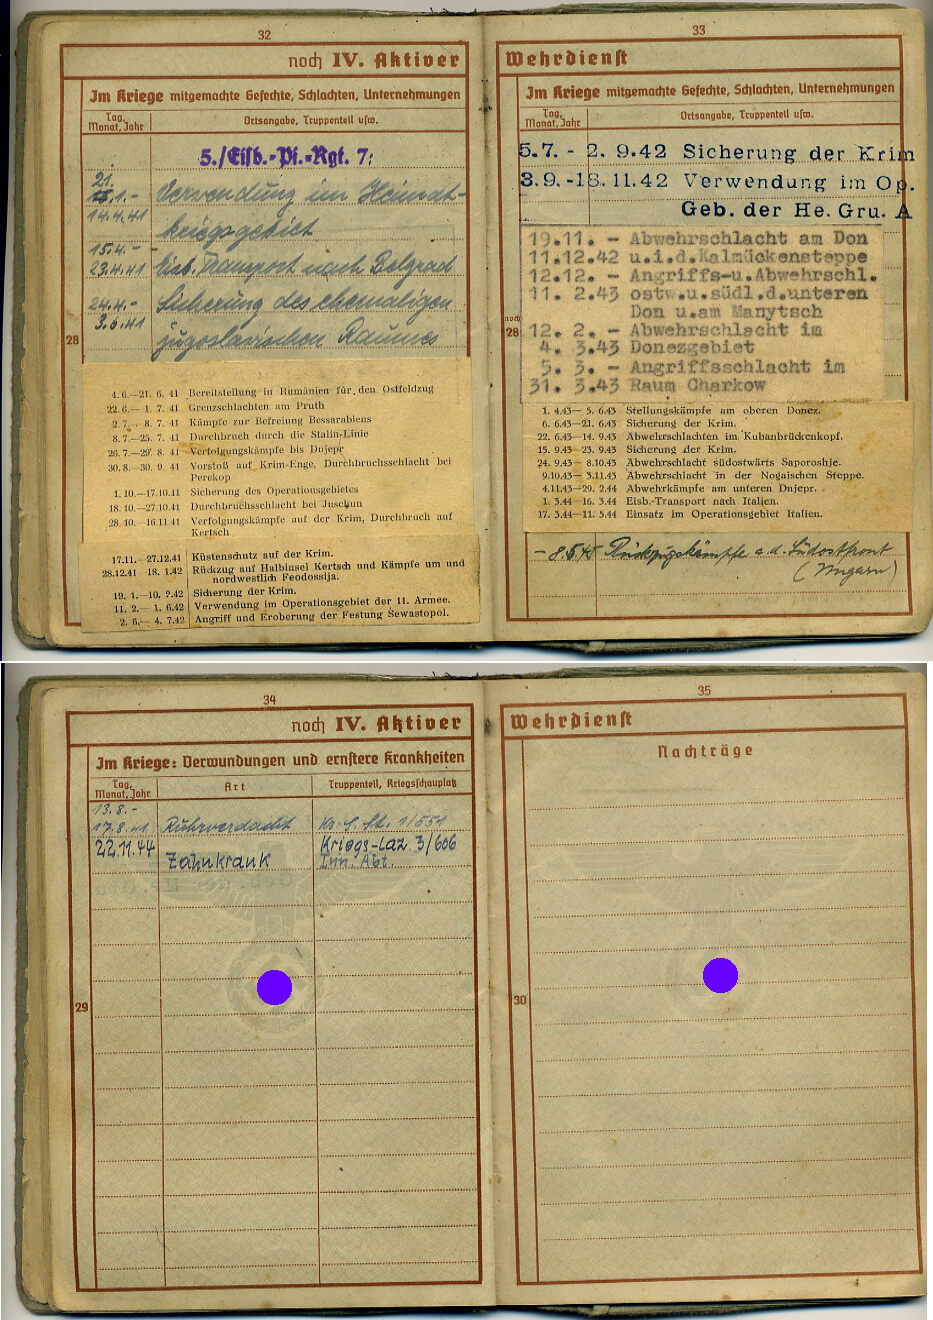 32
noch IV. Aktiver
Im Kriege mitgemachte Gefechte, Schlachten, Unternehmungen
Tag, Monat, Jahr
Ortsangabe, Truppenteil usw.
5./Eisb.-Pi.-Rgt. 7:
21.
1.-
14.4.41
Verwendung im Heimat-
kriegsgebiet
15.4.-
23.4.41 Eisb. Transport nach Belgrad
24.4.-
3.6.41
Sicherung des ehemaligen
jugoslavischen Raumes
28
4. 6.—21. 6. 41 Bereitstellung in Rumänien für den Ostfeldzug
22. 6.— 1. 7. 41 Grenzschlachten am Pruth
2. 7.— 8. 7. 41 Kämpfe zur Befreiung Bessarabiens
8. 7.—25. 7. 41 Durchbruch durch die Stalin-Linie
26. 7.—29. 8. 41 Verfolgungskämpfe bis Dnjepr
30. 8.—30. 9. 41 Vorstoß auf Krim-Enge, Durchbruchsschlacht bei
Perekop
1. 10.—17.10.41 Sicherung des Operationsgebietes
18. 10.—27.10.41 Durchbruchsschlacht bei Juschun
28. 10.—16.11.41 Verfolgungskämpfe auf der Krim, Durchbruch auf
Kertsch
17.11.—27.12.41 Küstenschutz auf der Krim.
28.12.41—18. 1.42 Rückzug auf Halbinsel Kertsch und Kämpfe um und
nordwestlich Feodossija.
19. 1.—10. 2.42 Sicherung der Krim.
11. 2.— 1. 6.42 Verwendung im Operationsgebiet der 11. Armee.
2. 6.— 4. 7.42 Angriff und Eroberung der Festung Sewastopol.
33
Wehrdienst
Im Kriege mitgemachte Gefechte, Schlachten, Unternehmungen
Tag, Monat, Jahr
Ortsangabe, Truppenteil usw.
5.7. - 2. 9.42 Sicherung der Krim
3.9.-18.11.42 Verwendung im Op.
Geb. der He. Gru. A
19.11. - Abwehrschlacht am Don
11.12.42 u.i.d.Kalmückensteppe
12.12. - Angriffs-u.Abwehrschl.
11. 2.43 ostw.u.südl.d.unteren
Don u.am Manytsch
noch
28
12. 2. - Abwehrschlacht im
4. 3.43 Donezgebiet
5. 3. - Angriffsschlacht im
31. 3.43 Raum Charkow
1. 4.43— 5. 6.43 Stellungskämpfe am oberen Donez.
6. 6.43—21. 6.43 Sicherung der Krim.
22. 6.43—14. 9.43 Abwehrschlachten im Kubanbrückenkopf.
15. 9.43—23. 9.43 Sicherung der Krim.
24. 9.43— 8.10.43 Abwehrschlacht südostwärts Saporoshje.
9.10.43— 3.11.43 Abwehrschlacht in der Nogaischen Steppe.
4.11.43—29. 2.44 Abwehrkämpfe am unteren Dnjepr.
1. 3.44—16. 3.44 Eisb.-Transport nach Italien.
17. 3.44—11. 5.44 Einsatz im Operationsgebiet Italien.
- 8.5.45 Rückzugskämpfe a.d. Südostfront
(Ungarn)
34
noch IV. Aktiver
Im Kriege: Verwundungen und ernstere Krankheiten
Tag, Monat, Jahr
Art
Truppenteil, Kriegsschauplatz
13.8.-
17.8.41 Ruhrverdacht Kr. S. St. 1/551
22.11.44 Zahnkrank Kriegs-Laz 3/606
Inn. Abt.
29
35
Wehrdienst
Nachträge
30